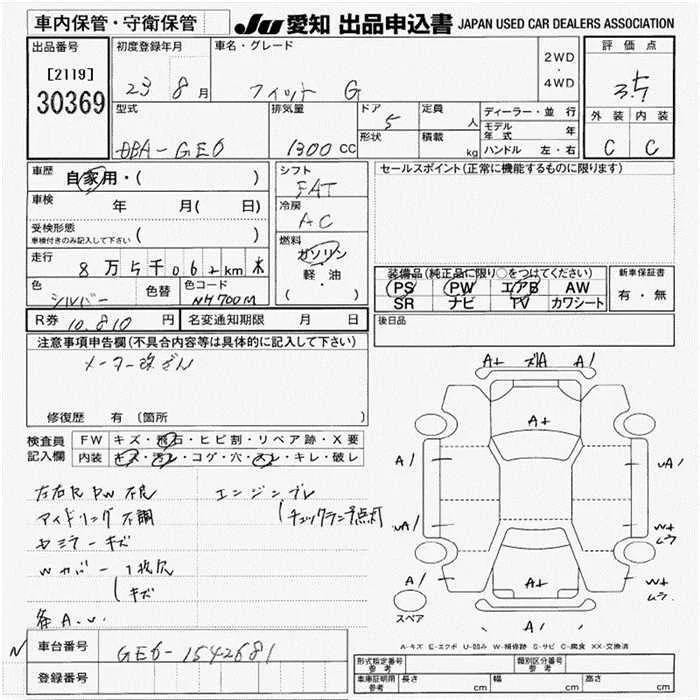 車内保管・守衛保管
JU 愛知 出品申込書 JAPAN USED CAR DEALERS ASSOCIATION
出品番号
[2119]
30369
初度登録年月
23 8 月
車名・グレード
フィット G
2WD
・
4WD
評価点
3.5
外装 内装
C C
型式
DBA-GE6
排気量
1300 cc
ドア
5
形状
定員
人
積載
kg
ディーラー・並 行
モデル年式 年
ハンドル 左・右
車歴
自家用・( )
車検 年 月( 日)
受検形態
車検付きのみ記入して下さい ( )
走行
8万5千062km
色
シルバー
色替
色コード
NH700M
シフト
FAT
冷房
AC
燃料
ガソリン
軽・油
( )
セールスポイント(正常に機能するものに限ります)
装備品(純正品に限り○をつけてください)
PS PW エアB AW
SR ナビ TV カワシート
新車保証書
有・無
R券 10,810 円
名変通知期限 月 日
後日品
注意事項申告欄(不具合内容等は具体的に記入して下さい)
メーター改ざん
修復歴 有 (箇所 )
検査員
記入欄
FW キズ・飛石・ヒビ割・リペア跡・X要
内装 キズ・汚レ・コゲ・穴・スレ・キレ・破レ
左右R PW 不良
エンジンブレ
アイドリング不調
(チェックランプ点灯
ヤミラーキズ
Wカバー 1枚欠
(キズ
各A.U.
A+ ズA A/
A+
A/ uA/
uA/ W+
A/ A+ W+
A/
スペア
A-キズ E-エクボ U-凹み W-補修跡 S-サビ C-腐食 XX-交換済
車台番号
GE6-1542681
登録番号
形式指定番号
参考
類別区分番号
参考
車庫証明用
参考
長さ cm 幅 cm 高さ cm